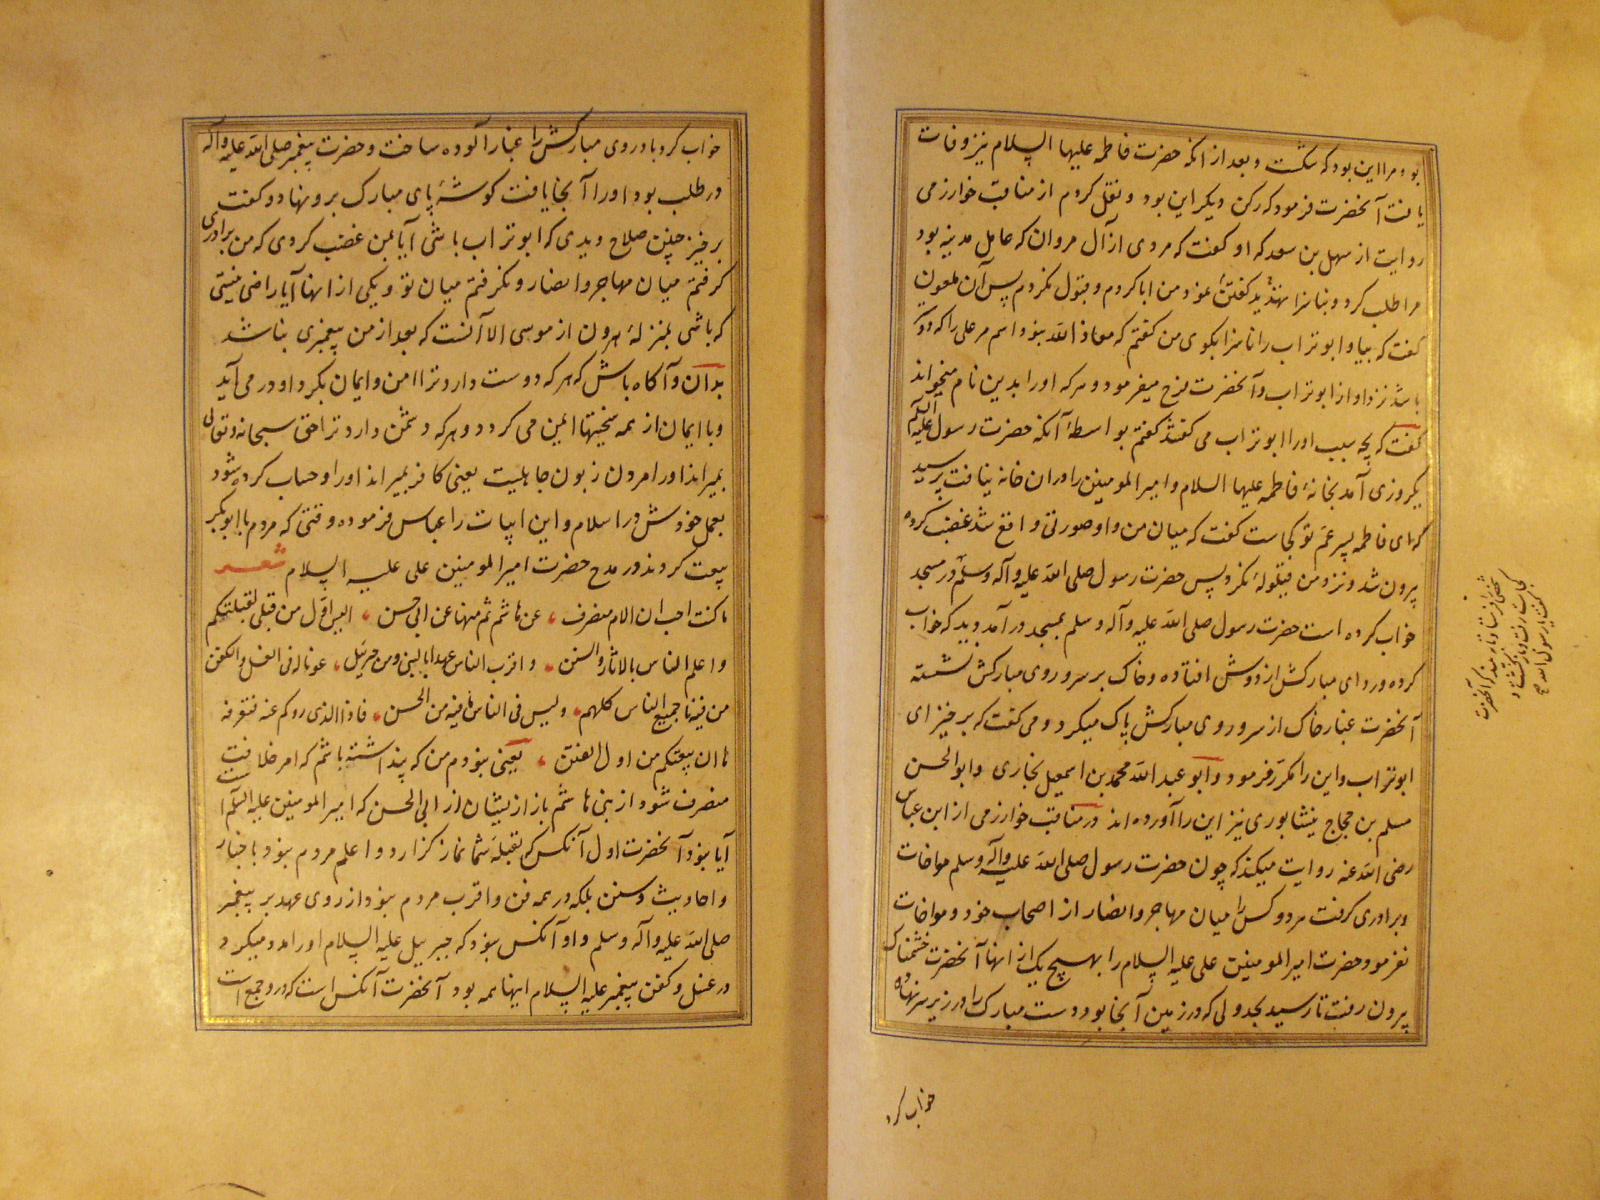 بود و مرا این بود که شکست و بعد از آنکه حضرت فاطمه علیها السلام نیز وفات
یافت آنحضرت فرمود که رکن دیکر این بود و نقل کردم از مناقب خوارزمی
روایت از سهل بن سعد که او کفت که مردی از آل مروان که عامل مدینه بود
مرا طلب کرد و بناسزا کفتن نمود من ابا کردم و قبول نکردم پس آن ملعون
کفت که بیا و ابو تراب را ناسزا بکوی من کفتم که معاذ الله نبود اسم مر علی را که دوستر
باشد نزد او از ابو تراب و آنحضرت فرح میفرمود و هر که او را بدین نام میخواند
کفت که بچه سبب او را ابو تراب می کفتند کفتم بواسطهٔ آنکه حضرت رسول علیه السلام
یکروزی آمد بخانهٔ فاطمه علیها السلام و امیر المومنین را در ان خانه نیافت پرسید
که ای فاطمه پسر عم تو کجاست کفت که میان من و او صورتی واقع شد غضب کرده
بیرون شد و نزد من قیلوله نکرد پس حضرت رسول صلی الله علیه و آله وسلم در مسجد
خواب کرده است حضرت رسول صلی الله علیه و آله وسلم بمسجد در آمد و دید که خواب
کرده و ردای مبارکش از دوش افتاده و خاک بر سر و روی مبارکش نشسته
آنحضرت غبار خاک از سر و روی مبارکش پاک میکرد و می کفت که برخیز ای
ابو تراب و این را مکرر فرمود و ابو عبد الله محمد بن اسمعیل بخاری و ابو الحسن
مسلم بن حجاج نیشابوری نیز این را آورده اند در مناقب خوارزمی از ابن عباس
رضی الله عنه روایت میکند که چون حضرت رسول صلی الله علیه و آله وسلم مواخات
و برادری کرفت هر دو کس را میان مهاجر و انصار از اصحاب خود و مواخات
نفرمود حضرت امیر المومنین علی علیه السلام را بهیچ یک از انها آنحضرت خشمناک
بیرون رفت تا رسید بجدولی که در زمین آنجا بود و دست مبارک را در زیر سر نهاده
خواب کرد
شخصی را فرستاد تا به بیند که آنحضرت
کجاست رفت و باز کشت و
کفت یا رسول الله
خواب کرد و باد روی مبارکش را غبار آلوده ساخت و حضرت پیغمبر صلی الله علیه و آله
در طلب بود او را آنجا یافت کوشهٔ پای مبارک برو نهاد و کفت
برخیز چنین صلاح دیدی که ابو تراب باشی آیا بمن غضب کردی که من برادری
کرفتم میان مهاجر و انصار و نکرفتم میان تو و یکی از انها آیا راضی نیستی
که باشی بمنزلهٔ هرون از موسی الا آنست که بعد از من پیغمبری نباشد
بدان و آکاه باش که هر که دوست دارد ترا امن و ایمان بکرد او در می آید
و با ایمان از همه سختیها ایمن می کردد و هر که دشمن دارد ترا حق سبحانه و تعالی
بمیراند او را مردن زبون جاهلیت یعنی کافر بمیراند او را و حساب کرده شود
بعمل خودش در اسلام و این ابیات را عباس فرموده وقتی که مردم با ابوبکر
بیعت کردند در مدح حضرت امیر المومنین علی علیه السلام شعر
ما کنت احب ان الامر منصرف عن هاشم ثم منها عن ابی حسن الیس اول من صلی لقبلتکم
و اعلم الناس بالاثار و السنن و اقرب الناس عهدا بالنبی و من جبریل عونا له فی الغسل و الکفن
من فیه ما جمیع الناس کلهم و لیس فی الناس ما فیه من الحسن فماذا الذی ردکم عنه فنعرفه
ها ان بیعتکم من اول الفتن یعنی نبودم من که پنداشته باشم که امر خلافت
منصرف شود از بنی هاشم باز از یشان از ابی الحسن که امیر المومنین علیه السلام
آیا نبود آنحضرت اول آنکس که بقبله شما نماز کزارد و اعلم مردم نبود باخبار
و احادیث و سنن بلکه در همه فن و اقرب مردم نبود از روی عهد بر پیغمبر
صلی الله علیه و آله وسلم و او آنکس نبود که جبرییل علیه السلام او را مدد میکرد
در غسل و کفن پیغمبر علیه السلام اینها همه بود آنحضرت آنکس است که درو جمیع است